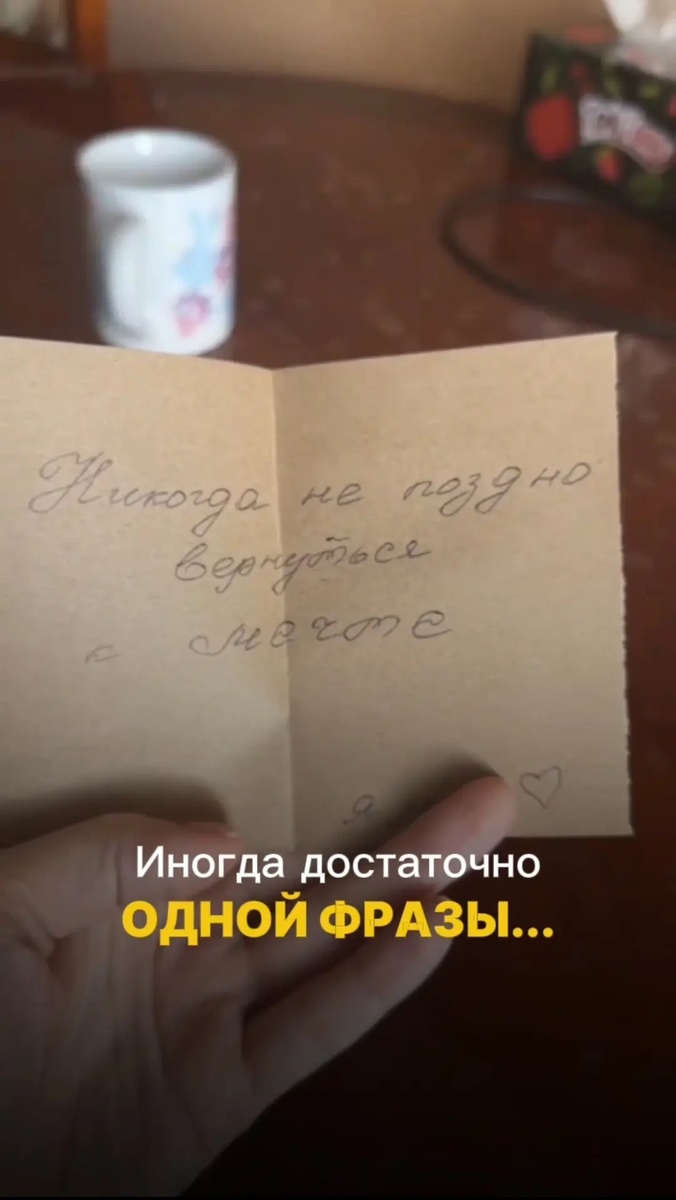 Никогда не поздно
вернуться
к мечте
я
Иногда достаточно
ОДНОЙ ФРАЗЫ...